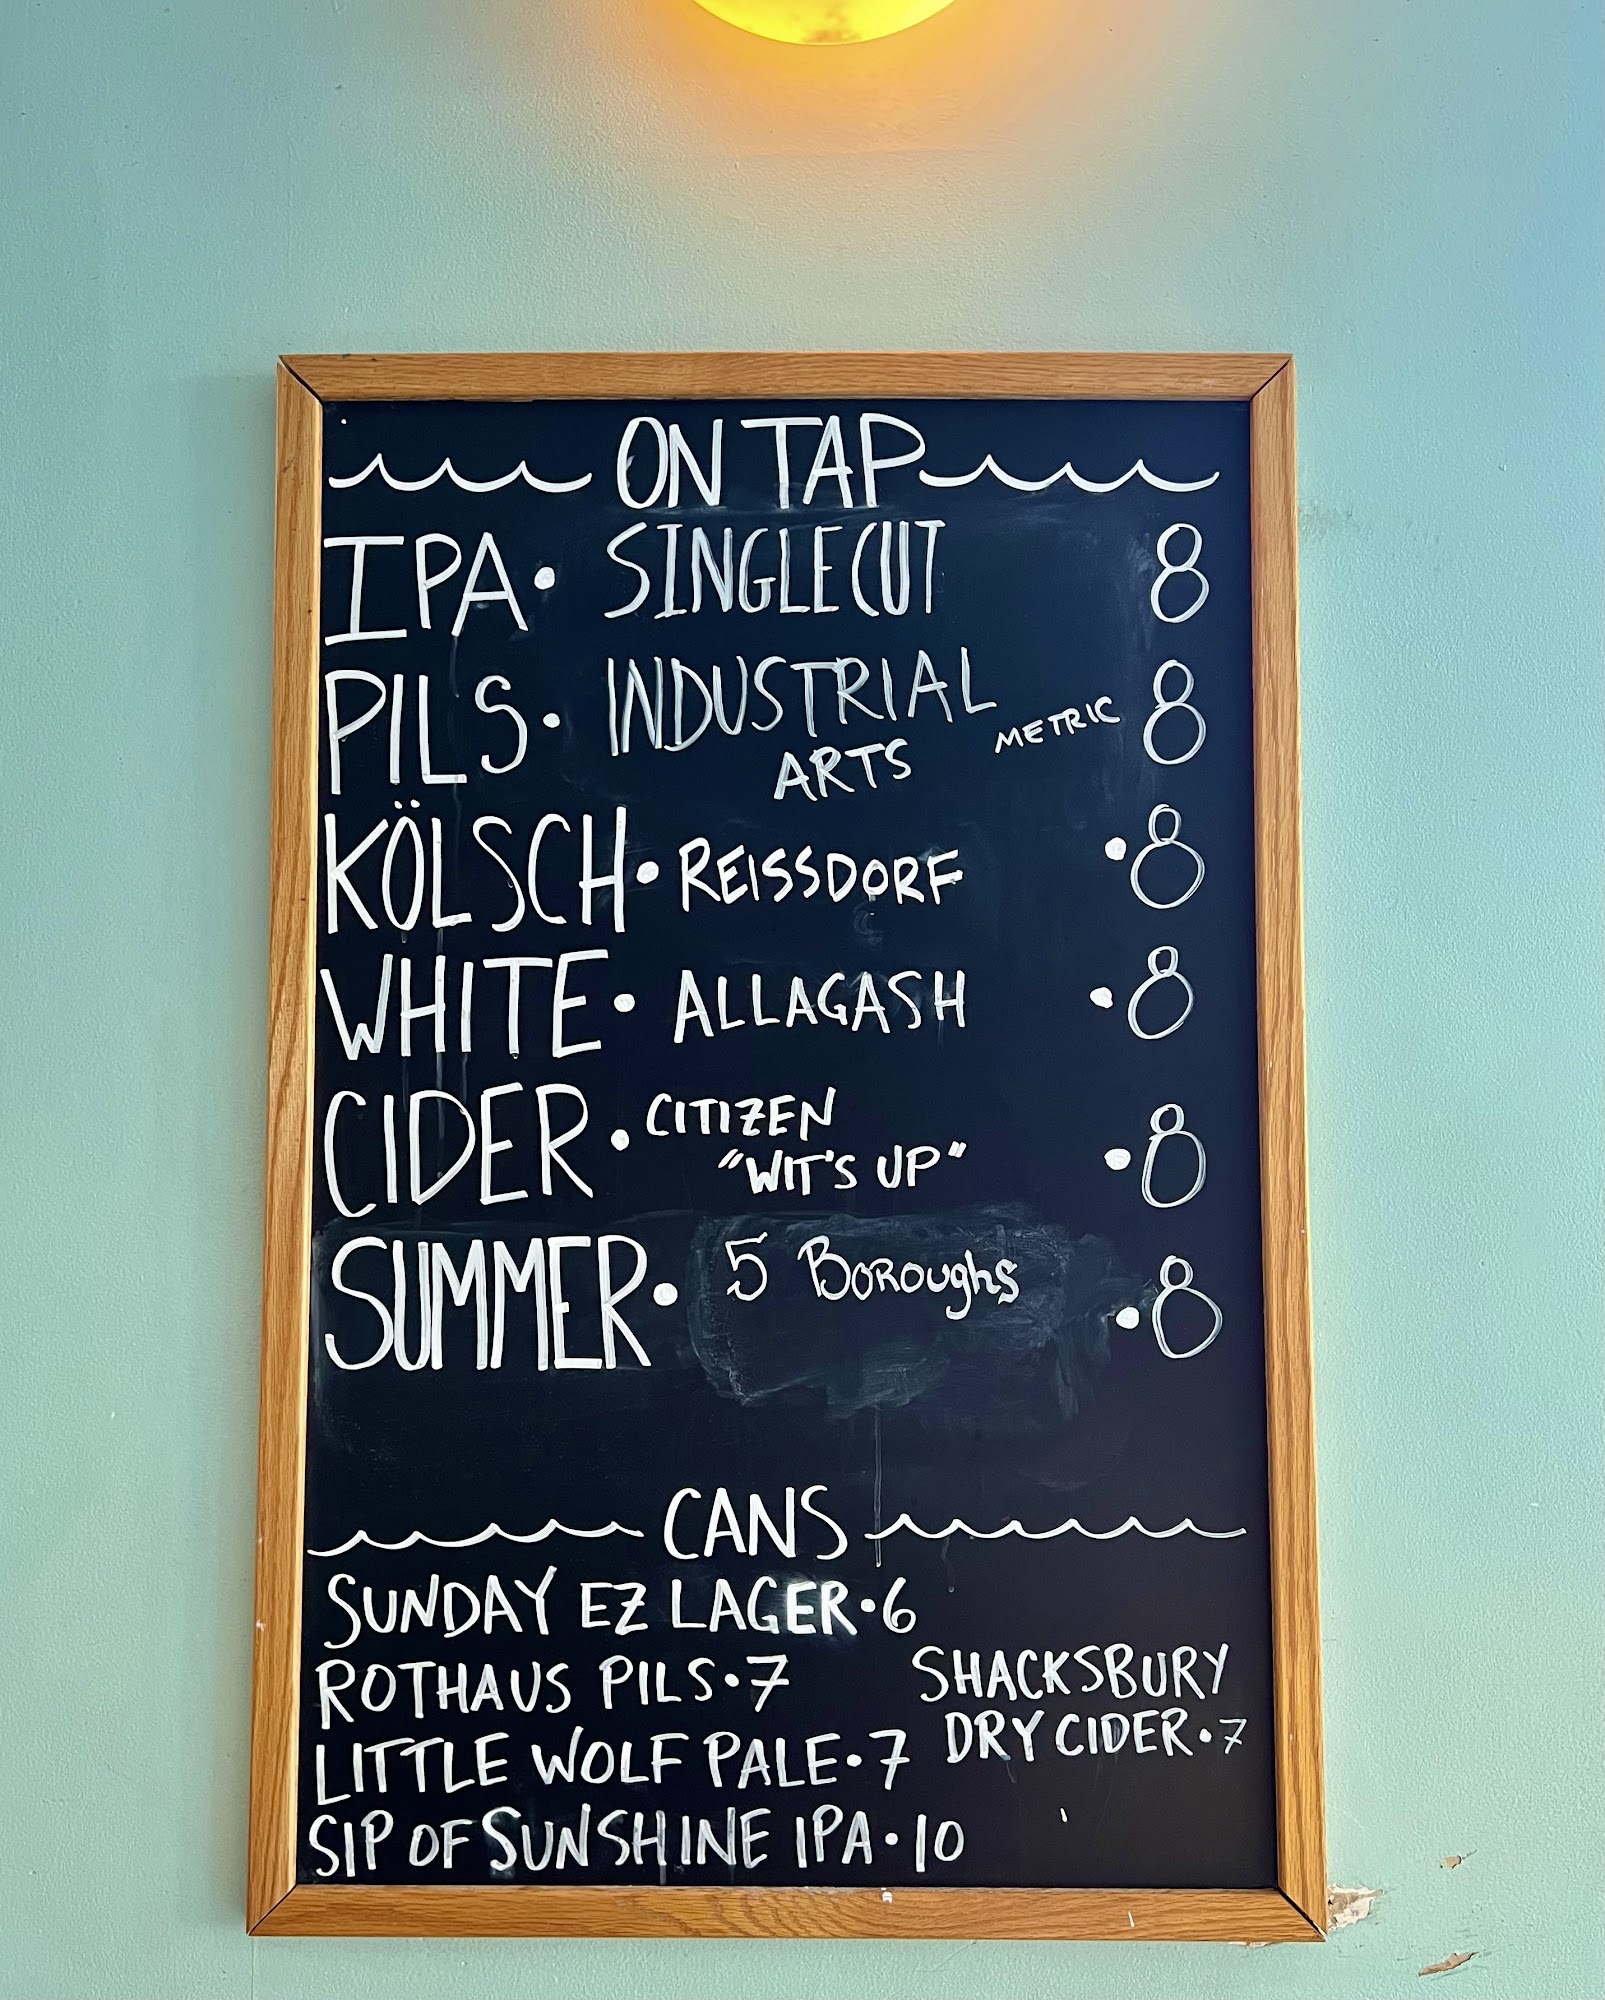 ON TAP
IPA • SINGLECUT 8
PILS • INDUSTRIAL ARTS METRIC 8
KÖLSCH • REISSDORF • 8
WHITE • ALLAGASH • 8
CIDER • CITIZEN "WIT'S UP" • 8
SUMMER • 5 Boroughs • 8
CANS
SUNDAY EZ LAGER • 6
ROTHAUS PILS • 7
LITTLE WOLF PALE • 7
SIP OF SUNSHINE IPA • 10
SHACKSBURY
DRY CIDER • 7